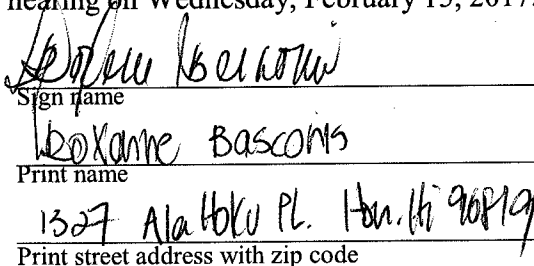 hearing on Wednesday, February 15, 2017.
Sign name
Roxanne Bascoms
Print name
1327 Ala Hoku PL. Hon. Hi 96819
Print street address with zip code